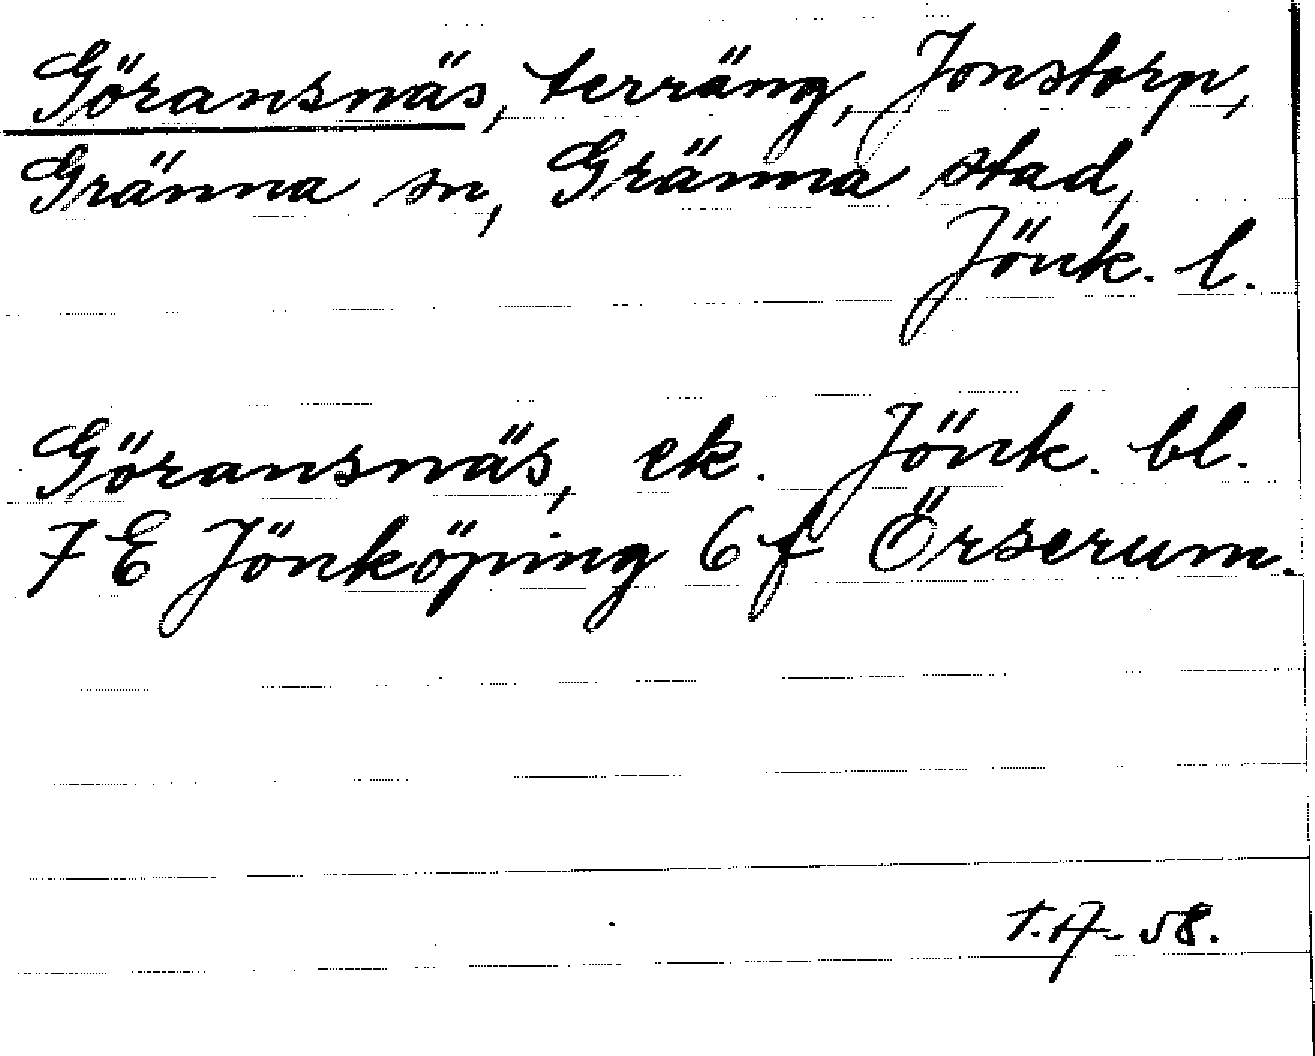 Göransnäs, terräng, Jonstorp,
Gränna sn, Gränna stad,
Jönk. l.
Göransnäs, ek. Jönk. bl.
7 E Jönköping 6 f Örserum.
T.A-58.